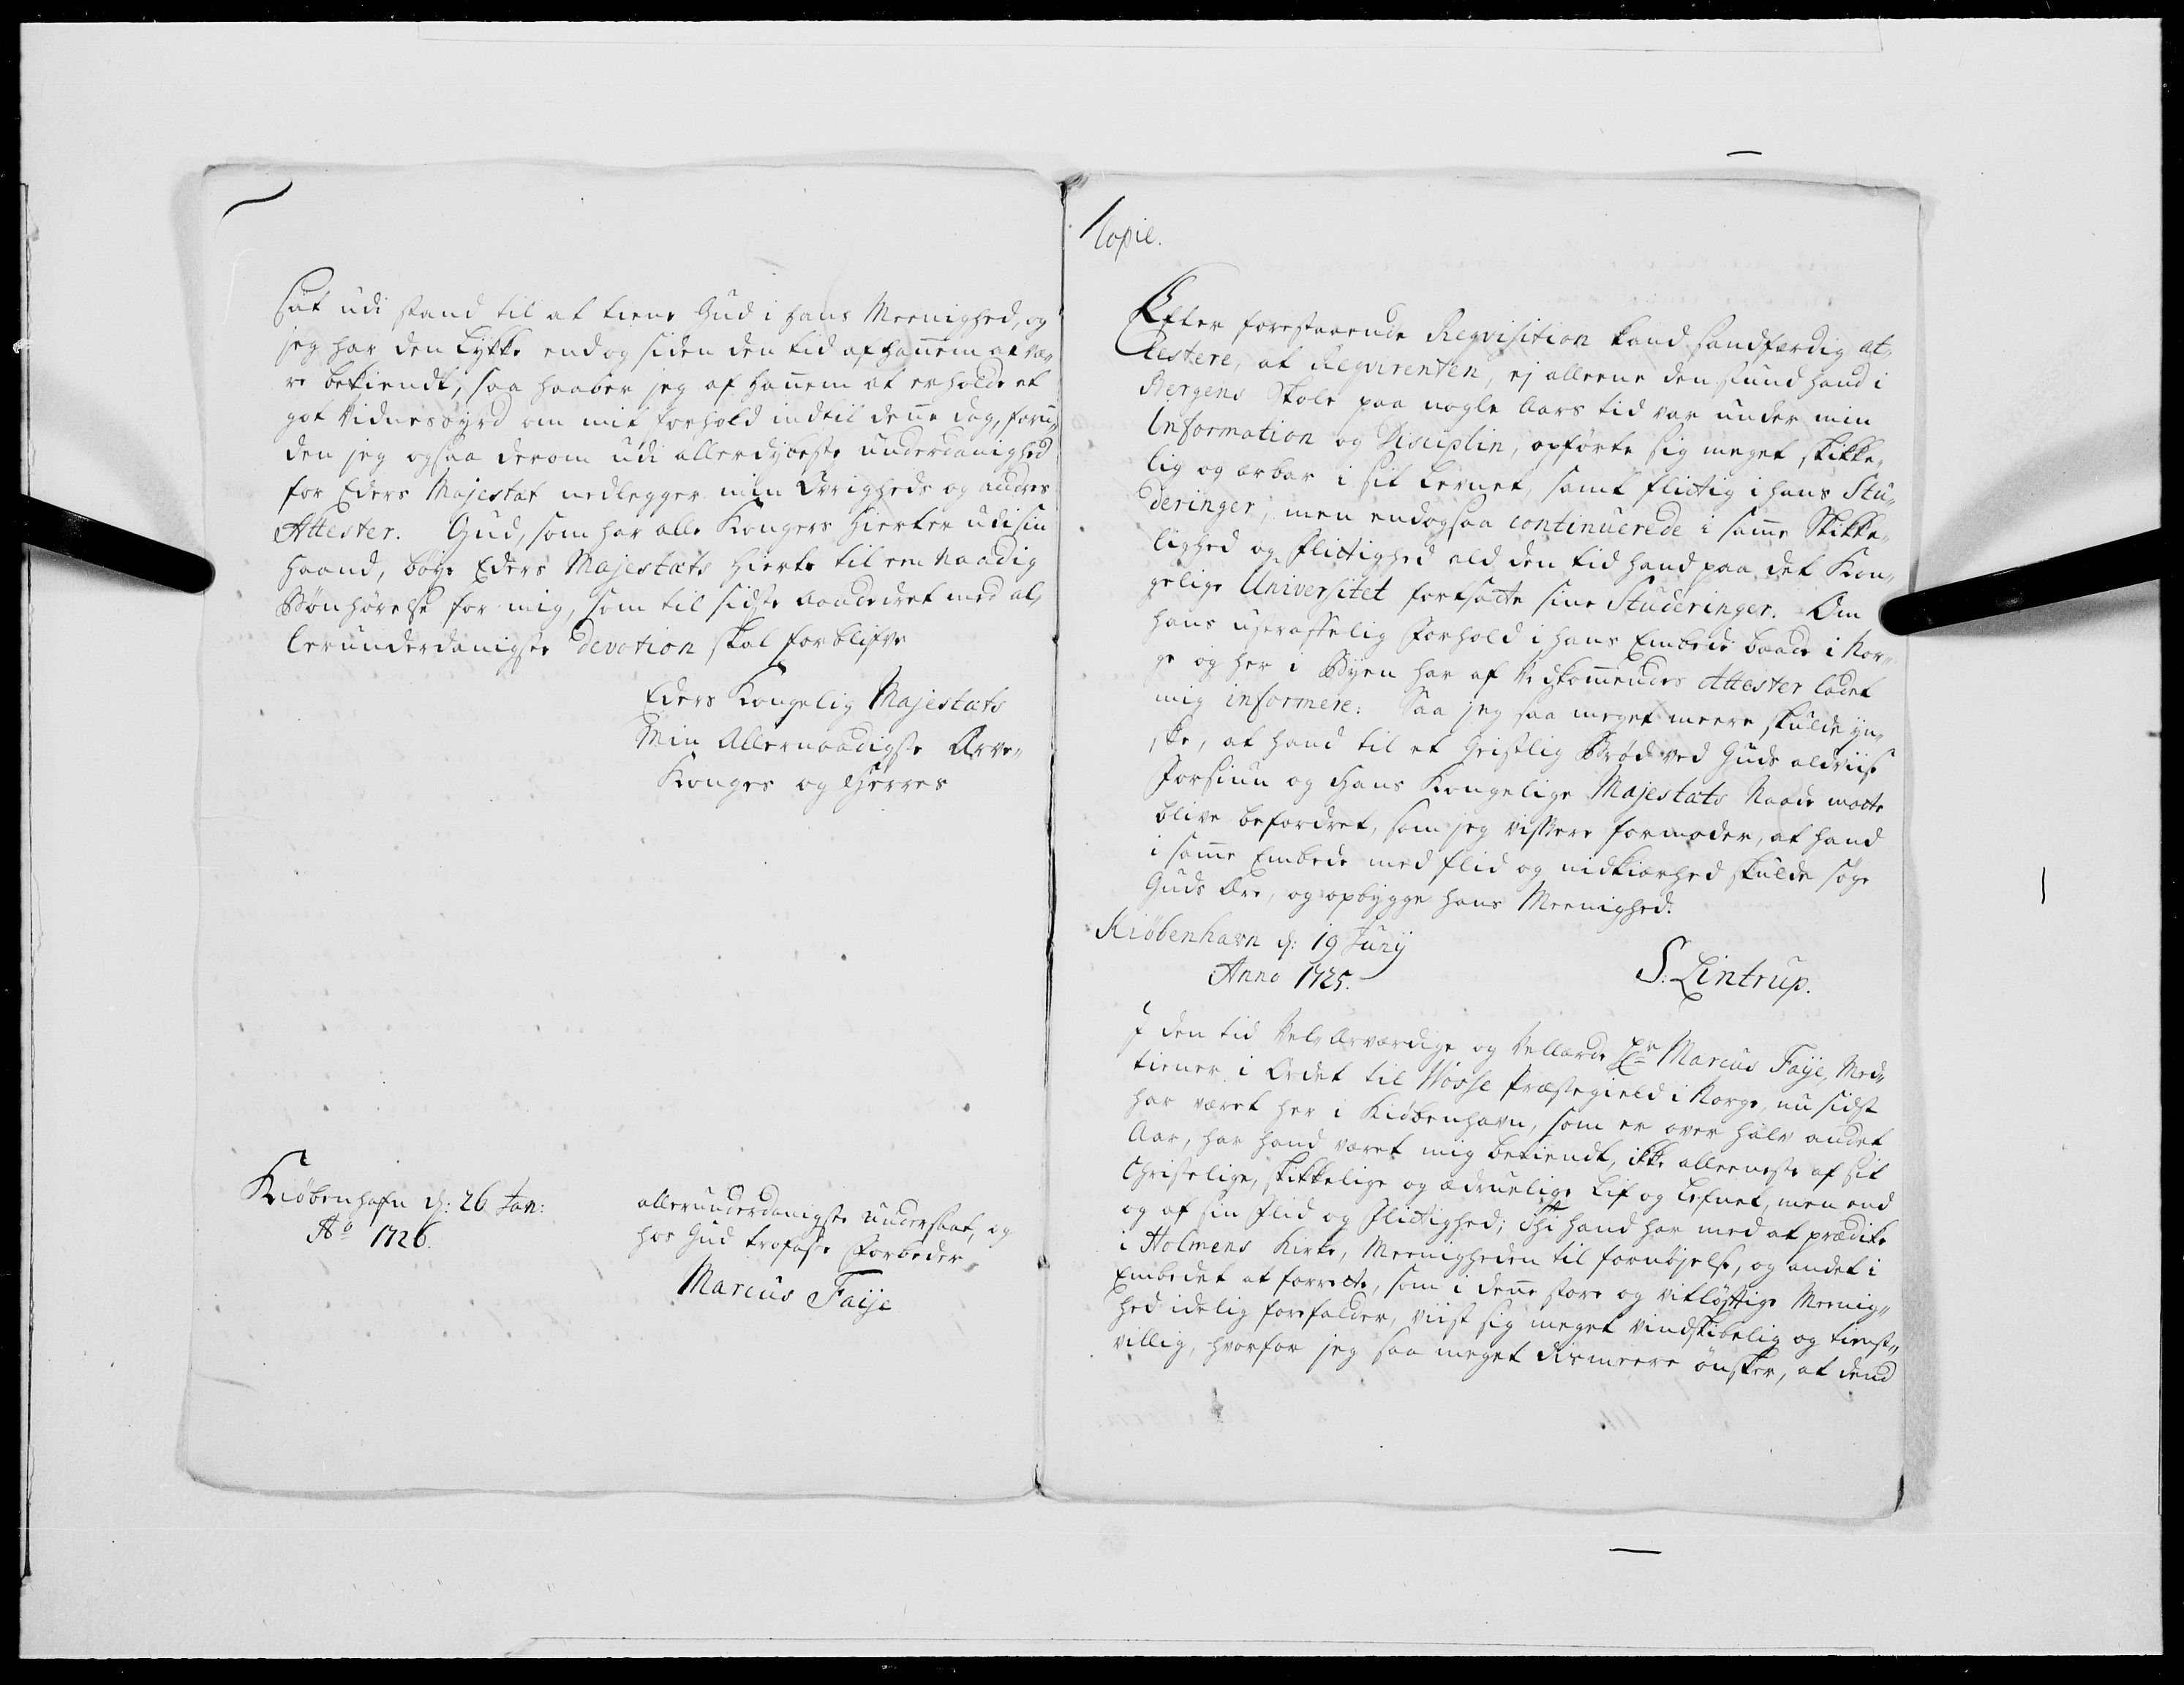 sat udi stand til at tiene Gud i hans Meenighed, og
jeg har den Lykke endog siden den tid af hannem at væ¬
re bekiendt, saa haaber jeg af hannem at erholde et
got Vidnesbyrd om mit forhold indtil denne dag, foru¬
den jeg ogsaa derom udi allerdybeste underdanighed
for Eders Majestæt nedlegger min Øvrigheds og andres
Attester. Gud, som har alle Kongers Hierter udi sin
Haand, bøye Eders Majestæts Hierte til en Naadig
Bønhørelse for mig, som til sidste Aandedret med al¬
lerunderdanigste devotion skal forblifve
Eders Kongelig Majestæts
Min Allernaadigste Arve¬
Konges og Herres
Kiøbenhafn d: 26 Jan:
Aº 1726.
allerunderdanigste undersaat, og
hos Gud trofaste Forbeder
Marcus Faije
Copie.
Efter forestaaende Reqvisition kand sandfærdig at¬
testere, at Reqvirenten, ej alleene den stund hand i
Bergens Skole paa nogle Aars tid var under min
Information og Disciplin, opførte sig meget skikke¬
lig og ærbar i sit Levnet, samt flittig i hans Stu¬
deringer; men endogsaa continuerede i samme Skikke¬
lighed og flittighed ald den tid hand paa det Kon¬
gelige Universitet fortsatte sine Studeringer. Om
hans ustraffelig Forhold i hans Embede baade i Nor¬
ge og her i Byen har af Vedkommendes Attester ladet
mig informere: Saa jeg saa meget meere skulde øn¬
ske, at hand til et Geistlig Brød ved Guds alviise
Forsiun og Hans Kongelige Majestæts Naade maatte
blive befordret, som jeg vissere formoder, at hand
i samme Embede med flid og nidkiærhed skulde søge
Guds Ære, og opbygge hans Meenighed.
Kiøbenhavn d: 19 Junij
Anno 1725.
S. Lintrup.
I den tid Vel-Ærværdige og Vellærde Hr Marcus Faije, Med¬
tiener i Ordet til Wosse Præstegield i Norge, nu sidst
har været her i Kiøbenhavn, som er over halv andet
Aar, har hand været mig bekiendt, ikke alleeneste af sit
Christelige, skikkelige og ædruelige Lif og Lefnet, men end
og af sin Flid og Flittighed; Thi hand har med at prædike
i Holmens Kirke, Meenigheden til fornøjelse, og andet i
Embedet at forrette, som i denne store og vitløftige Meenig¬
hed idelig forefalder, viist sig meget vindskibelig og tienst¬
villig, hvorfor jeg saa meget dismeere ønsker, at dend